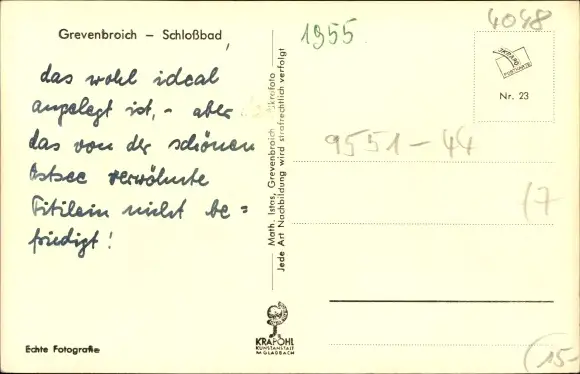 Grevenbroich – Schloßbad,
1955.
4048
das wohl ideal
angelegt ist, – aber
das von der schönen
Ostsee verwöhnte
Titilein nicht be=
friedigt!
Math. Istas, Grevenbroich
Jede Art Nachbildung wird strafrechtlich verfolgt
POSTKARTE
Nr. 23
9551–44
(7
KRAPOHL
KUNSTANSTALT
M. GLADBACH
Echte Fotografie
(15-